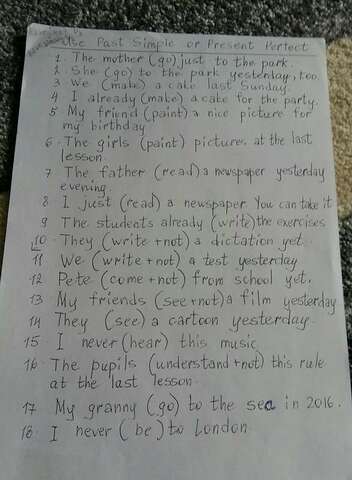 Use Past Simple or Present Perfect
1. The mother (go) just to the park.
2. She (go) to the park yesterday, too.
3 We (make) a cake last Sunday.
4 I already (make) a cake for the party.
5 My friend (paint) a nice picture for
my birthday
6. The girls (paint) pictures at the last
lesson.
7 The father (read) a newspaper yesterday
evening.
8 I just (read) a newspaper. You can take it
9 The students already (write) the exercises
10. They (write + not) a dictation yet.
11 We (write + not) a test yesterday
12 Pete (come + not) from school yet.
13 My friends (see + not) a film yesterday
14 They (see) a cartoon yesterday.
15. I never (hear) this music.
16. The pupils (understand + not) this rule
at the last lesson.
17 My granny (go) to the sea in 2016.
18. I never (be) to London